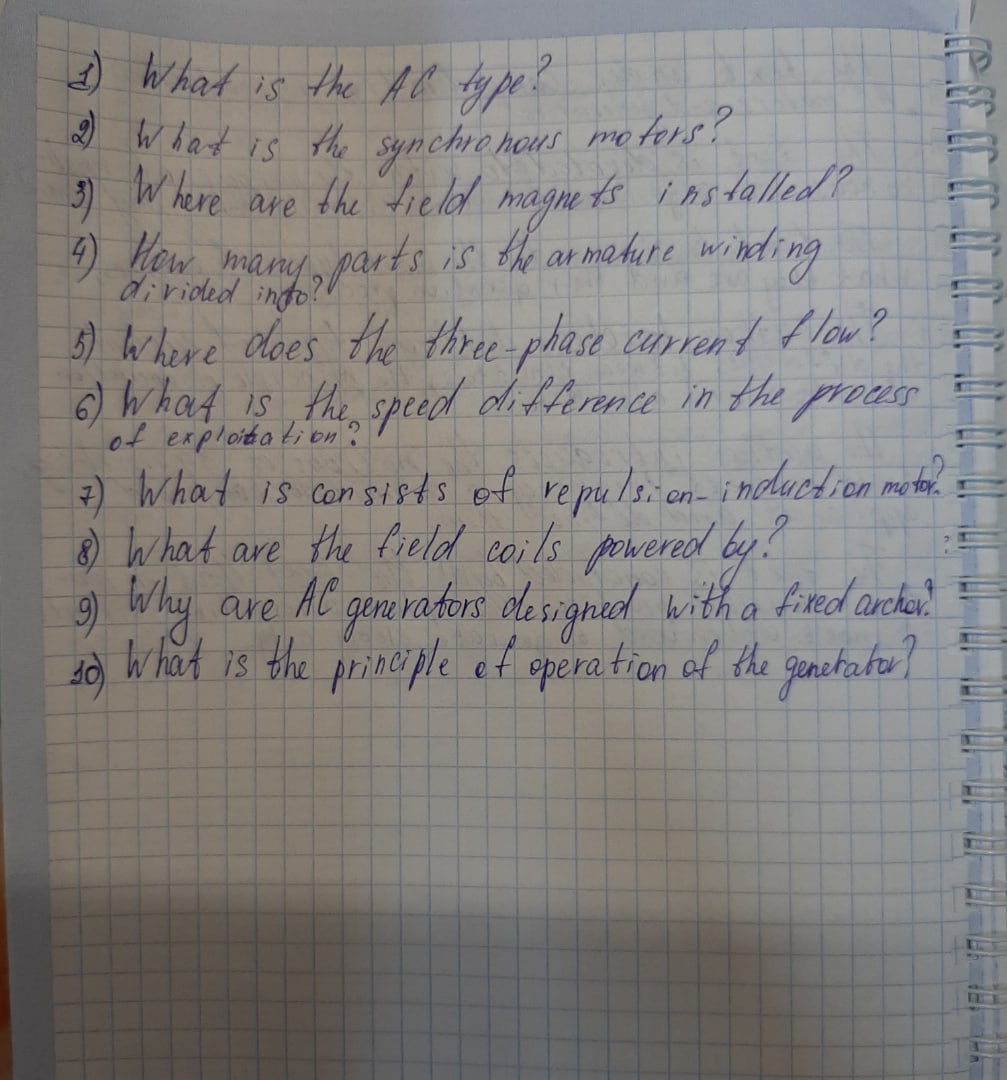 1) What is the AC type?
2) What is the synchronous motors?
3) Where are the field magnets installed?
4) How many parts is the armature winding
divided into?
5) Where does the three-phase current flow?
6) What is the speed difference in the process
of exploitation?
7) What is consists of repulsion-induction motor?
8) What are the field coils powered by?
9) Why are AC generators designed with a fixed anchor?
10) What is the principle of operation of the generator?